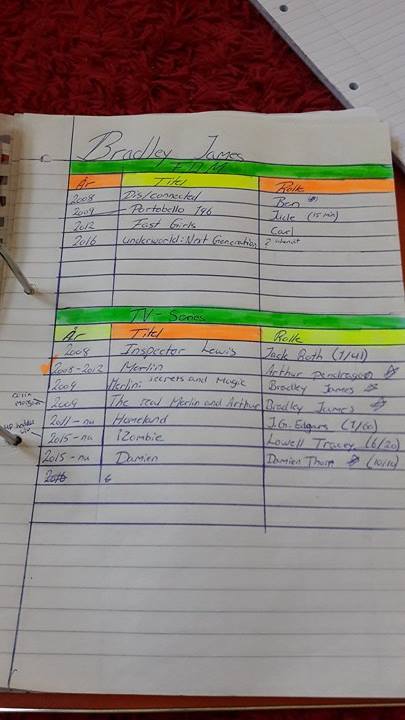 Bradley James
FILM
År Titel Rolle
2008 Dis/connected Ben
2009 Portobello 196 Jude (15 min)
2012 Fast Girls Carl
2016 Underworld: Next Generation ?
TV-Series
År Titel Rolle
2008 Inspector Lewis Jack Roth (1/41)
2008-2012 Merlin Arthur Pendragon
2009 Merlin: secrets and magic Bradley James
2009 The real Merlin and Arthur Bradley James
2011-nu Homeland J.G. Edgars (1/60)
2015-nu iZombie Lowell Tracey (6/20)
2015-nu Damien Damien Thorn (10/10)
2016 6